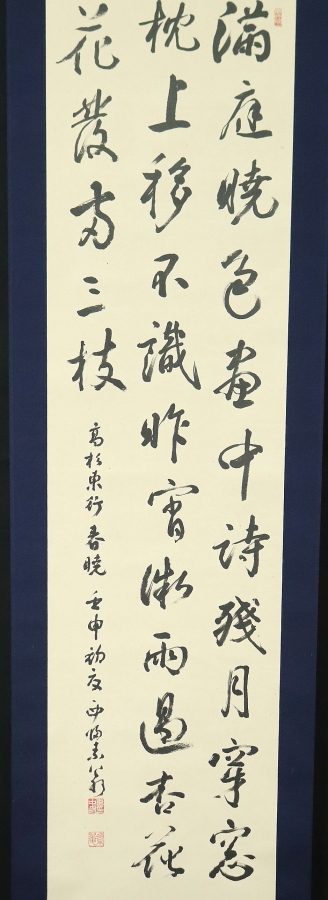 滿庭曉色畫中詩殘月穿窓
枕上移不識昨宵微雨過杏花
花發両三枝
高杉東行 春曉 壬申初夏